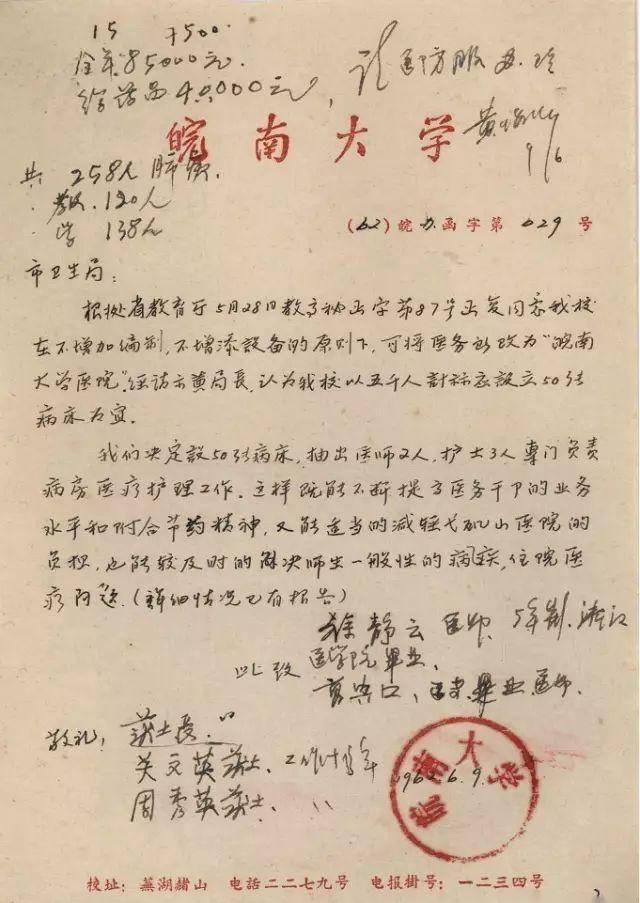 15 7500
全年85000元.
给药品40000元,
请医防服务 
黄
9/6
皖南大学
共 258人 肝
教.120人
学 138人
(62)皖办函字第 629 号
市卫生局:
根据省教育厅5月28日教高秘函字第87号函复同意我校
在不增加编制,不增添設备的原则下,可将医务所改为“皖南
大学医院”,经請示黄局長,认为我校以五千人計标意設立50張
病床为宜.
我们决定設50張病床,抽出医师2人,护士3人專门负责
病房医疗护理工作.这样既能不断提高医务干部的业务
水平和附合节约精神,又能适当的減轻弋矶山医院的
负担,也能较及时的解决师生一般性的病疾,住院医
疗问題.(詳细情况已有报告)
徐静云 医师,5年制.浙江
医学院畢业,
此致
畢业医师.
敬礼!
护士長.
关文英护士,工作十多年
周秀英护士.〃
1962.6.9.
皖南大学
校址:蕪湖赭山 电話二二七九号 电报掛号:一二三四号